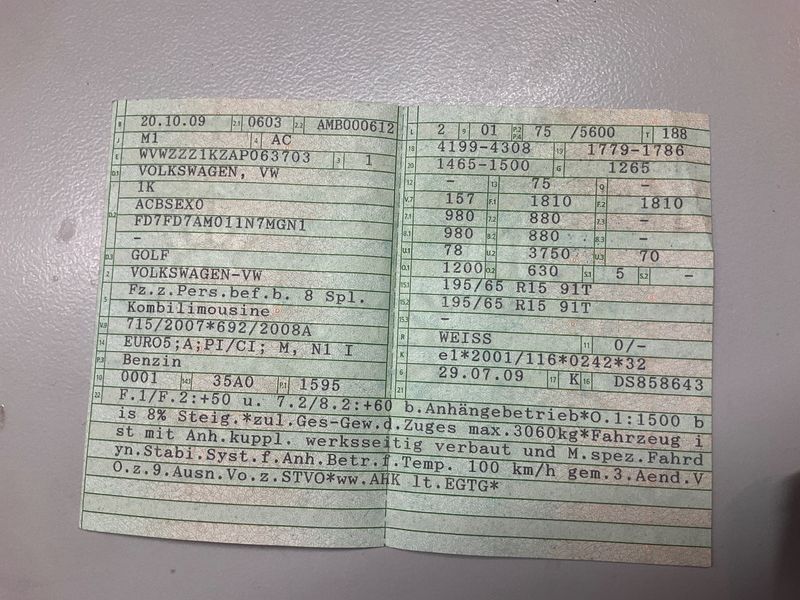 B 20.10.09 2.1 0603 2.2 AMB000612
J M1 4 AC
E WVWZZZ1KZAP063703 3 1
D.1 VOLKSWAGEN, VW
1K
D.2 ACBSEX0
FD7FD7AM011N7MGN1
-
D.3 GOLF
2 VOLKSWAGEN-VW
5 Fz.z.Pers.bef.b. 8 Spl.
Kombilimousine
V.9 715/2007*692/2008A
14 EURO5;A;PI/CI; M, N1 I
P.3 Benzin
10 0001 14.1 35A0 P.1 1595
L 2 9 01 P.2 P.4 75 /5600 T 188
18 4199-4308 19 1779-1786
20 1465-1500 G 1265
12 - 13 75 Q -
V.7 157 F.1 1810 F.2 1810
7.1 980 7.2 880 7.3 -
8.1 980 8.2 880 8.3 -
U.1 78 U.2 3750 U.3 70
O.1 1200 O.2 630 S.1 5 S.2 -
15.1 195/65 R15 91T
15.2 195/65 R15 91T
15.3 -
R WEISS 11 0/-
K e1*2001/116*0242*32
6 29.07.09 17 K 16 DS858643
21
22 F.1/F.2:+50 u. 7.2/8.2:+60 b.Anhängebetrieb*O.1:1500 b
is 8% Steig.*zul.Ges-Gew.d.Zuges max.3060kg*Fahrzeug i
st mit Anh.kuppl. werksseitig verbaut und M.spez.Fahrd
yn.Stabi.Syst.f.Anh.Betr.f.Temp. 100 km/h gem.3.Aend.V
O.z.9.Ausn.Vo.z.STVO*ww.AHK lt.EGTG*